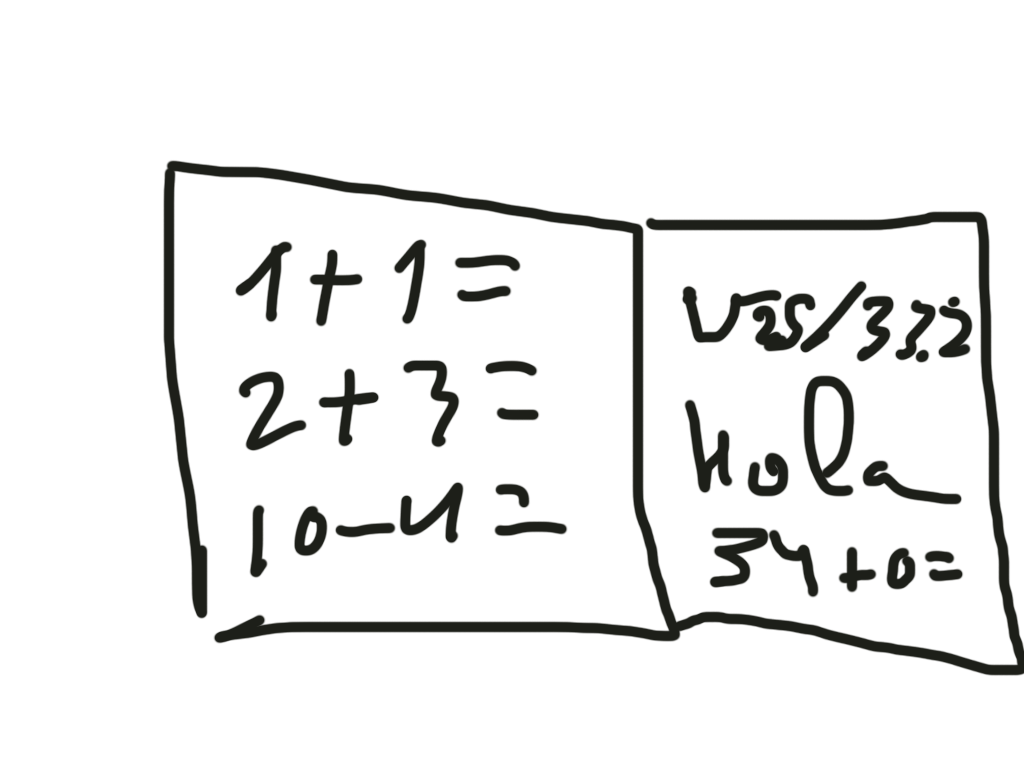 1+1=
2+3=
10-4=
√25/33.2
Hola
34+0=